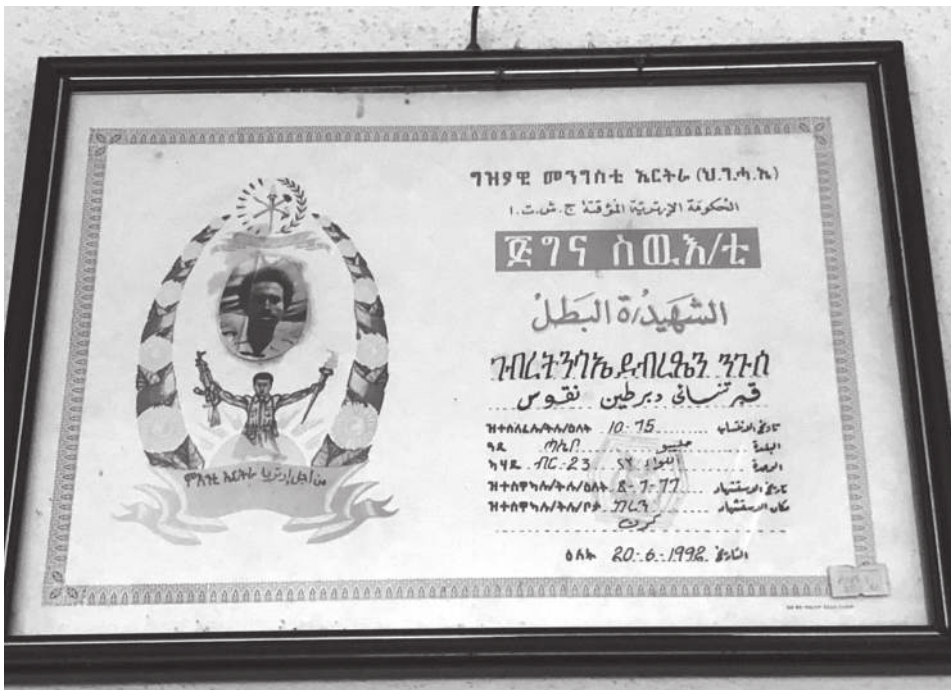 ግዝያዊ መንግስቲ ኤርትራ (ህ.ግ.ሓ.ኤ)
الحكومة الإريترية المؤقتة ج.ش.ت.ا
ጅግና ስዉእ/ቲ
الشهيد/ة البطل
ገብረትንሳኤ ደብረጼን ንጉሰ
نقوس
ዝተሰለፈሉ/ትሉ/ዕለት 10-75 تاريخ الانضمام
ዓዲ البلدة
ክፍሊ ብር-23 اللواء ٢٣ الوحدة
ዝተሰዋኣሉ/ትሉ/ዕለት 8-7-77 تاريخ الاستشهاد
ዝተሰዋኣሉ/ትሉ/ቦታ ከረን مكان الاستشهاد
كرن
ዕለት 20-6-1992 التاريخ
ምእንቲ ኤርትራ من أجل إرتريا